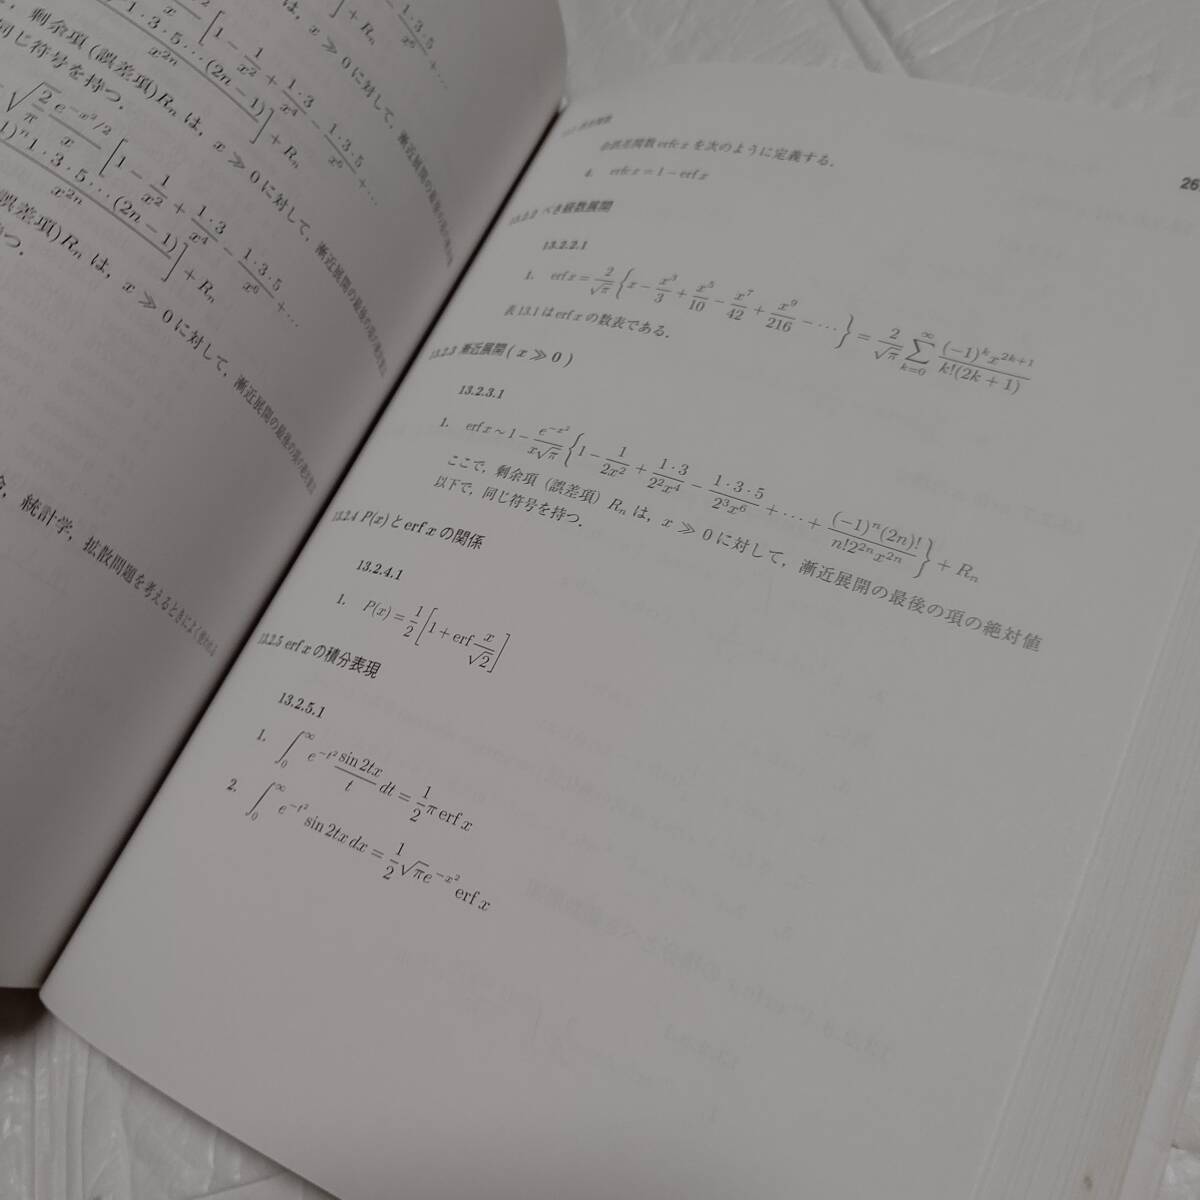 剰余項(誤差項)R_n は, x ≫ 0 に対して, 漸近展開の最後の項の絶対値
同じ符号を持つ.
√(2/π) e^{-x²/2}/x [1 - 1/x² + 1·3/x⁴ - 1·3·5/x⁶ + …
1)ⁿ1·3·5…(2n-1)/x^{2n}] + R_n
誤差項)R_n は, x ≫ 0 に対して, 漸近展開の最後の項の絶対値
つ.
, 統計学, 拡散問題を考えるときによく使われる
26
余誤差関数 erfc x を次のように定義する.
4. erfc x = 1 - erf x
13.2.2 べき級数展開
13.2.2.1
1. erf x = 2/√π {x - x³/3 + x⁵/10 - x⁷/42 + x⁹/216 - …} = 2/√π ∑_{k=0}^{∞} (-1)^k x^{2k+1}/k!(2k+1)
表 13.1 は erf x の数表である.
13.2.3 漸近展開 ( x ≫ 0 )
13.2.3.1
1. erf x ~ 1 - e^{-x²}/x√π {1 - 1/2x² + 1·3/2²x⁴ - 1·3·5/2³x⁶ + … + (-1)ⁿ(2n)!/n!2^{2n}x^{2n}} + R_n
ここで, 剰余項 (誤差項) R_n は, x ≫ 0 に対して, 漸近展開の最後の項の絶対値
以下で, 同じ符号を持つ.
13.2.4 P(x) と erf x の関係
13.2.4.1
1. P(x) = 1/2 [1 + erf x/√2]
13.2.5 erf x の積分表現
13.2.5.1
1. ∫₀^∞ e^{-t²} sin 2tx/t dt = 1/2 π erf x
2. ∫₀^∞ e^{-t²} sin 2tx dx = 1/2 √π e^{-x²} erf x